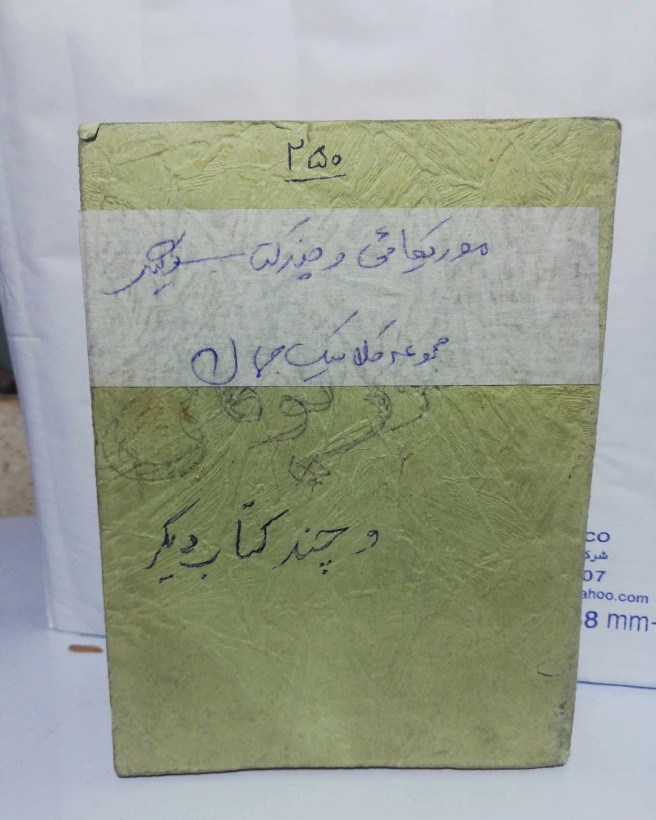 ۲۵۰
موریکوامی و چند کتاب دیگر
مجموعه کلاسیک جهان
و چند کتاب دیگر
CO
شرک
07
ahoo.com
8 mm-